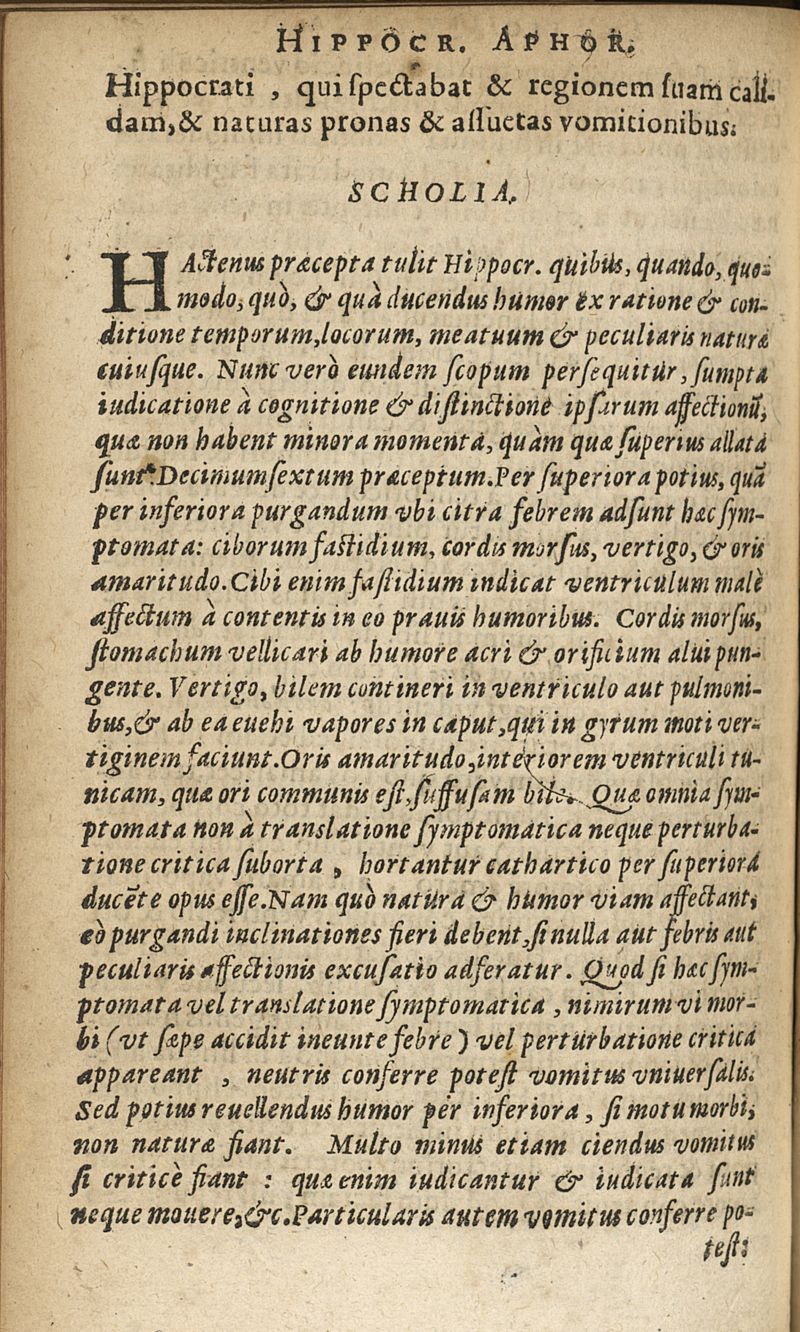 HIPPOCR. APHOR.
Hippocrati , qui ſpectabat & regionem ſuam cali-
dam,& naturas pronas & aſſuetas vomitionibus.
SCHOLIA.
HActenus præcepta tulit Hippocr. quibus, quando, quo-
modo, quò, & quà ducendus humor ex ratione & con-
ditione temporum,locorum, meatuum & peculiaris naturæ
cuiuſque. Nunc verò eundem ſcopum perſequitur, ſumpta
iudicatione à cognitione & diſtinctione ipſarum affectionũ,
quæ non habent minora momenta, quàm quæ ſuperius allata
ſunt. Decimumſextum præceptum. Per ſuperiora potius, quã
per inferiora purgandum vbi citra febrem adſunt hæc ſym-
ptomata: ciborum faſtidium, cordis morſus, vertigo, & oris
amaritudo. Cibi enim faſtidium indicat ventriculum malè
affectum à contentis in eo prauis humoribus. Cordis morſus,
ſtomachum vellicari ab humore acri & orificium alui pun-
gente. Vertigo, bilem contineri in ventriculo aut pulmoni-
bus,& ab ea euehi vapores in caput,qui in gyrum moti ver-
tiginem faciunt. Oris amaritudo,interiorem ventriculi tu-
nicam, quæ ori communis eſt,ſuffuſam bile. Quæ omnia ſym-
ptomata non à translatione ſymptomatica neque perturba-
tione critica ſuborta , hortantur cathartico per ſuperiora
ducẽte opus eſſe. Nam quò natura & humor viam affectant,
eò purgandi inclinationes fieri debent,ſi nulla aut febris aut
peculiaris affectionis excuſatio adferatur. Quod ſi hæc ſym-
ptomata vel translatione ſymptomatica , nimirum vi mor-
bi (vt ſæpe accidit ineunte febre) vel perturbatione critica
appareant , neutris conferre poteſt vomitus vniuerſalis.
Sed potius reuellendus humor per inferiora , ſi motu morbi,
non naturæ fiant. Multo minus etiam ciendus vomitus
ſi criticè fiant : quæ enim iudicantur & iudicata ſunt
neque mouere,&c. Particularis autem vomitus conferre po-
teſt: